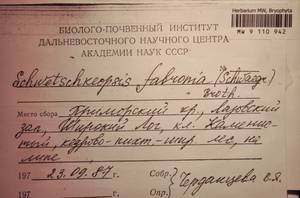 Herbarium MW, Bryophyta
MW 9 110 942
БИОЛОГО-ПОЧВЕННЫЙ ИНСТИТУТ
ДАЛЬНЕВОСТОЧНОГО НАУЧНОГО ЦЕНТРА
АКАДЕМИИ НАУК СССР
Schwetschkeopsis fabronia (Schwaegr.)
Broth.
Место сбора Приморский кр., Лазовский
зап., Широкий Лог, кл. Каменис-
тый, кедрово-пихт-шир. лес, на
липе
197 23.09.87 г. Собр. Черданцева В.Я.
197 Опр.